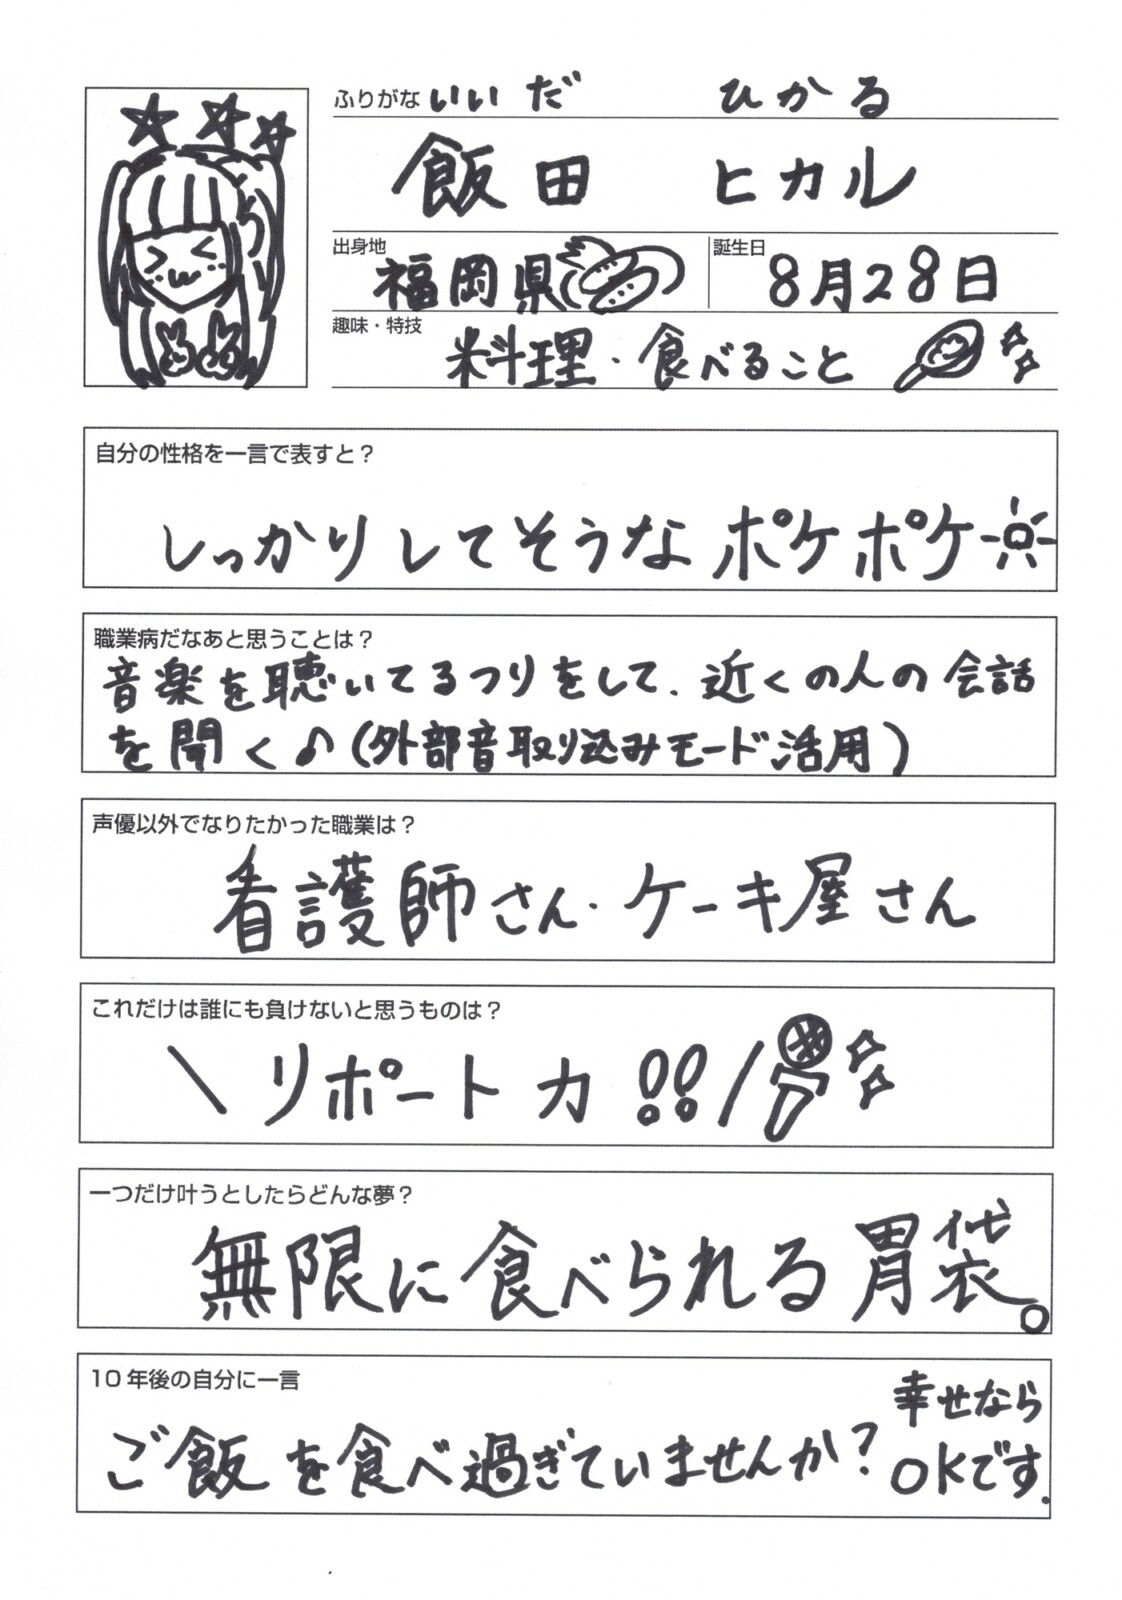 ふりがな いいだ ひかる
飯田 ヒカル
出身地 福岡県
誕生日 8月28日
趣味・特技 料理・食べること
自分の性格を一言で表すと？
しっかりしてそうなポケポケ
職業病だなあと思うことは？
音楽を聴いてるつりをして、近くの人の会話
を聞く♪(外部音取り込みモード活用)
声優以外でなりたかった職業は？
看護師さん・ケーキ屋さん
これだけは誰にも負けないと思うものは？
\ リポート力!! /
一つだけ叶うとしたらどんな夢？
無限に食べられる胃袋。
10年後の自分に一言
ご飯を食べ過ぎていませんか？
幸せなら
OKです.